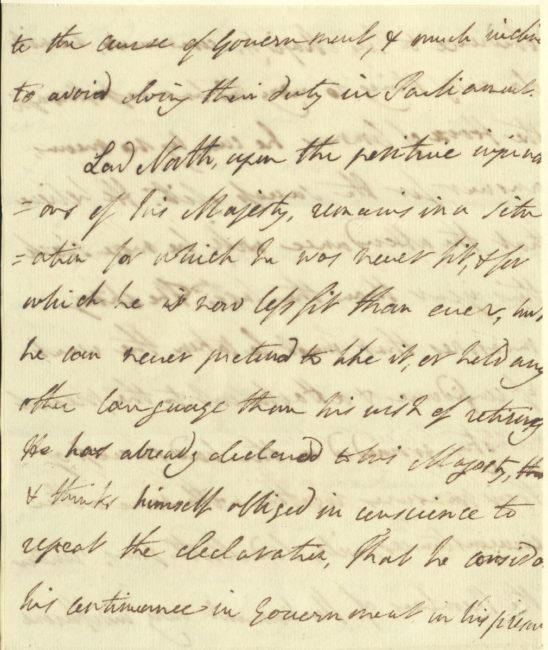 to the cause of Government, & much inclin
to avoid doing their duty in Parliament.
Lord North, upon the positive injunc
=ons of his Majesty, remains in a situ
=ation for which he was never fit, & for
which he is now less fit than ever, but
he can never pretend to like it, or hold any
other language than his wish of retiring
He has already declared to his Majesty,
& thinks himself obliged in conscience to
repeat the declaration, That he conside
his continuance in Government in his presen